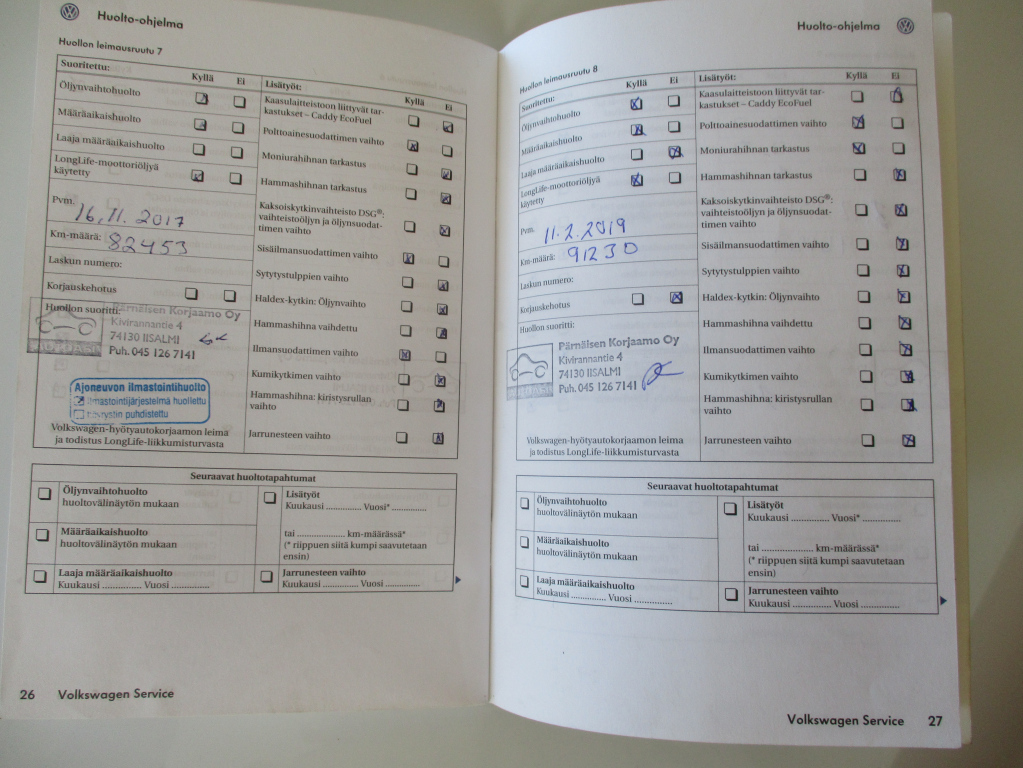 Huolto-ohjelma
Huollon leimausruutu 7
Suoritettu:
Kyllä Ei
Öljynvaihtohuolto
Määräaikaishuolto
Laaja määräaikaishuolto
LongLife-moottoriöljyä
käytetty
Pvm. 16.11.2017
Km-määrä: 82453
Laskun numero:
Korjauskehotus
Huollon suoritti:
Pärnäisen Korjaamo Oy
Kivirannantie 4
74130 IISALMI
Puh. 045 126 7141
Ajoneuvon ilmastointihuolto
Ilmastointijärjestelmä huollettu
puhdistettu
Volkswagen-hyötyautokorjaamon leima
ja todistus LongLife-liikkumisturvasta
Lisätyöt:
Kyllä Ei
Kaasulaitteistoon liittyvät tar-
kastukset – Caddy EcoFuel
Polttoainesuodattimen vaihto
Moniurahihnan tarkastus
Hammashihnan tarkastus
Kaksoiskytkinvaihteisto DSG®:
vaihteistoöljyn ja öljynsuodat-
timen vaihto
Sisäilmansuodattimen vaihto
Sytytystulppien vaihto
Haldex-kytkin: Öljynvaihto
Hammashihna vaihdettu
Ilmansuodattimen vaihto
Kumikytkimen vaihto
Hammashihna: kiristysrullan
vaihto
Jarrunesteen vaihto
Seuraavat huoltotapahtumat
Öljynvaihtohuolto
huoltovälinäytön mukaan
Määräaikaishuolto
huoltovälinäytön mukaan
Laaja määräaikaishuolto
Kuukausi .............. Vuosi ...............
Lisätyöt
Kuukausi .............. Vuosi* ..............
tai .................... km-määrässä*
(* riippuen siitä kumpi saavutetaan
ensin)
Jarrunesteen vaihto
Kuukausi .............. Vuosi ..............
26 Volkswagen Service
Huolto-ohjelma
Huollon leimausruutu 8
Suoritettu:
Kyllä Ei
Öljynvaihtohuolto
Määräaikaishuolto
Laaja määräaikaishuolto
LongLife-moottoriöljyä
käytetty
Pvm. 11.2.2019
Km-määrä: 91230
Laskun numero:
Korjauskehotus
Huollon suoritti:
Pärnäisen Korjaamo Oy
Kivirannantie 4
74130 IISALMI
Puh. 045 126 7141
Volkswagen-hyötyautokorjaamon leima
ja todistus LongLife-liikkumisturvasta
Lisätyöt:
Kyllä Ei
Kaasulaitteistoon liittyvät tar-
kastukset – Caddy EcoFuel
Polttoainesuodattimen vaihto
Moniurahihnan tarkastus
Hammashihnan tarkastus
Kaksoiskytkinvaihteisto DSG®:
vaihteistoöljyn ja öljynsuodat-
timen vaihto
Sisäilmansuodattimen vaihto
Sytytystulppien vaihto
Haldex-kytkin: Öljynvaihto
Hammashihna vaihdettu
Ilmansuodattimen vaihto
Kumikytkimen vaihto
Hammashihna: kiristysrullan
vaihto
Jarrunesteen vaihto
Seuraavat huoltotapahtumat
Öljynvaihtohuolto
huoltovälinäytön mukaan
Määräaikaishuolto
huoltovälinäytön mukaan
Laaja määräaikaishuolto
Kuukausi .............. Vuosi ...............
Lisätyöt
Kuukausi .............. Vuosi* ..............
tai .................... km-määrässä*
(* riippuen siitä kumpi saavutetaan
ensin)
Jarrunesteen vaihto
Kuukausi .............. Vuosi ..............
Volkswagen Service 27